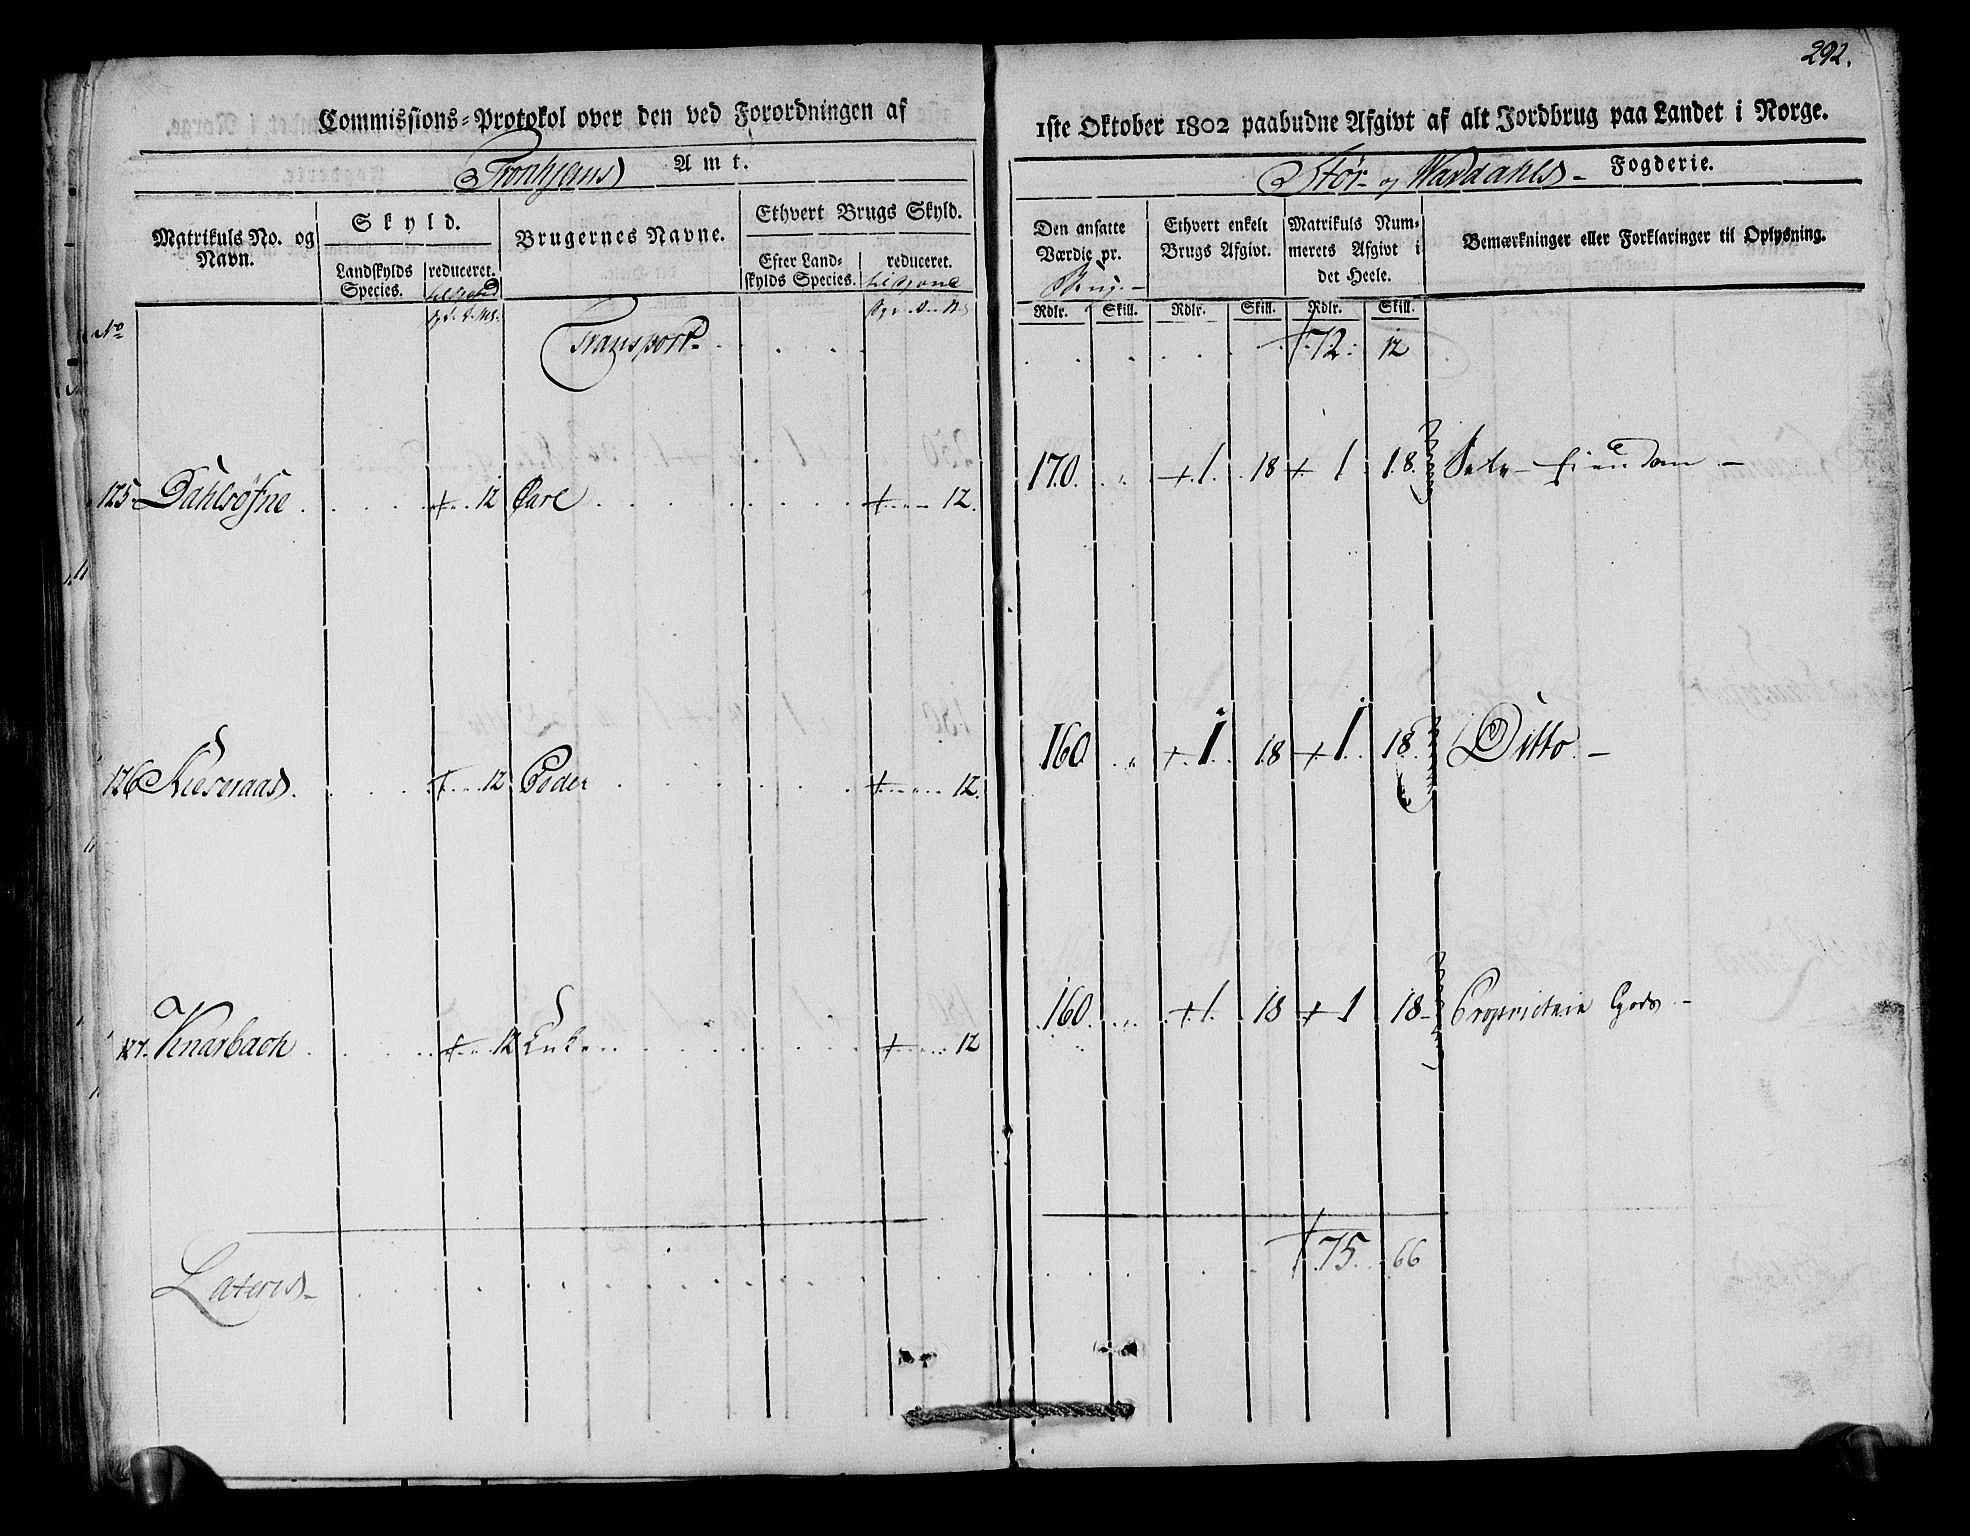 292.
Commissions-Protokol over den ved Forordningen af
1ste Oktober 1802 paabudne Afgivt af alt Jordbrug paa Landet i Norge.
Tronhjems Amt.
Stør- og Værdahls- Fogderie.
Matrikuls No. og Navn.
Skyld.
Landskylds Species.
reduceret.
Brugernes Navne.
Ethvert Brugs Skyld.
Efter Landskylds Species.
reduceret.
Den ansatte Værdie pr. Brug.-
Ethvert enkelt Brugs Afgivt.
Matrikuls Nummerets Afgivt i det Heele.
Bemærkninger eller Forklaringer til Oplysning.
Rdlr. Skill. Rdlr. Skill. Rdlr. Skill.
No Transport 72. 12
125 Dahlsøfne 12 Carl 12. 170. 1. 18 1 18. Selv-Eiendom-
126 12 Peder 12. 160 1. 18 1. 18 Ditto.-
127. Knarbach 12 12 160. 1. 18 1 18- Proprietair Gods-
Lateris- 75. 66